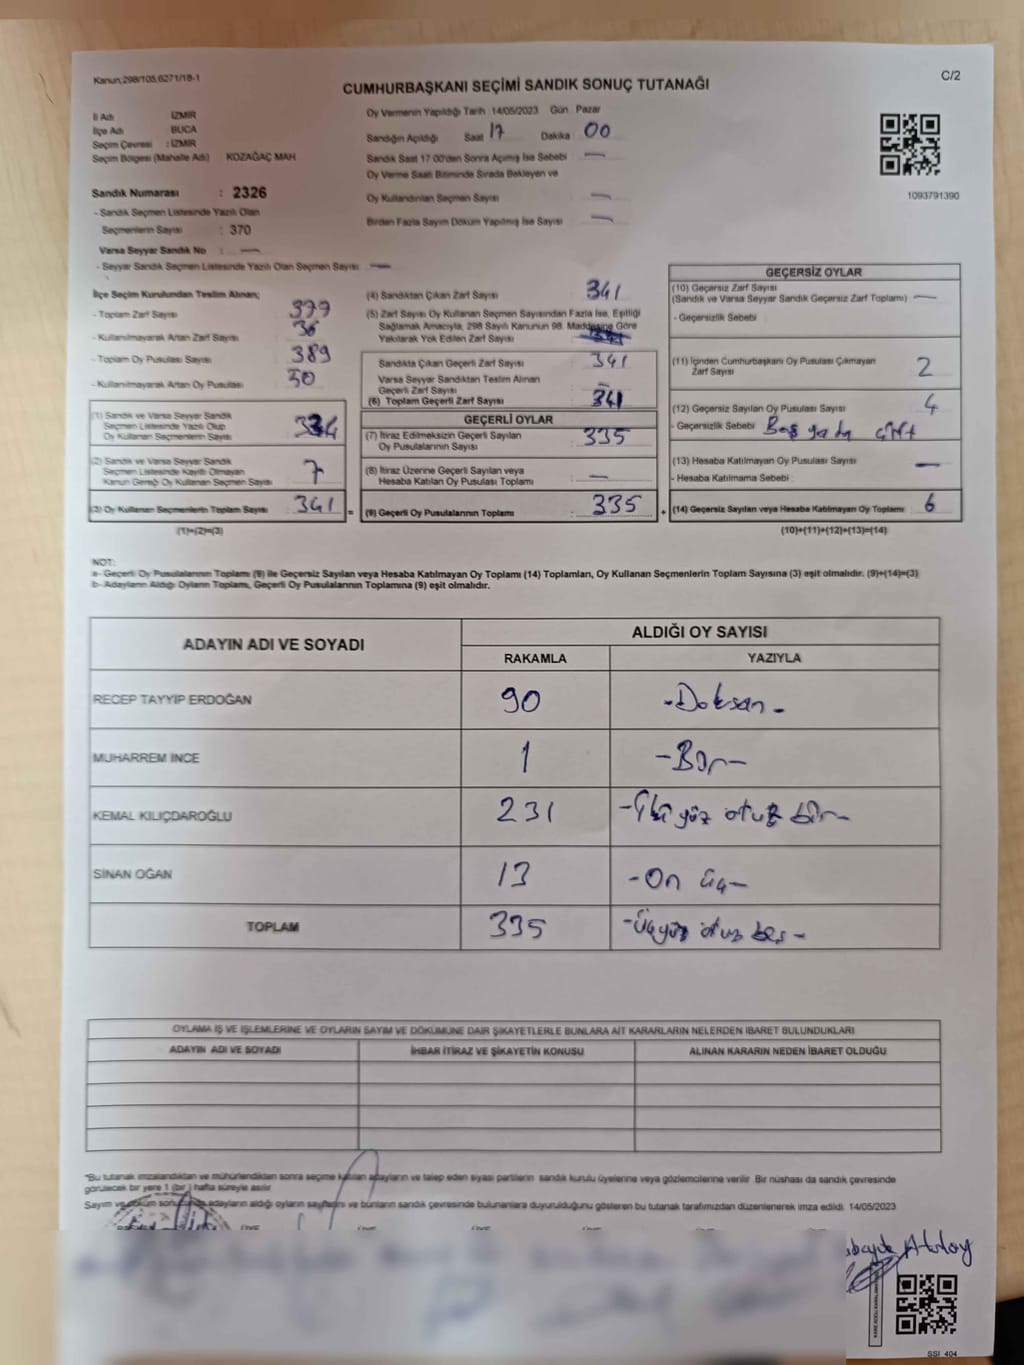 Kanun,298/105,6271/18-1
C/2
CUMHURBAŞKANI SEÇİMİ SANDIK SONUÇ TUTANAĞI
İl Adı İZMİR
İlçe Adı BUCA
Seçim Çevresi : İZMİR
Seçim Bölgesi (Mahalle Adı) KOZAĞAÇ MAH
Sandık Numarası : 2326
- Sandık Seçmen Listesinde Yazılı Olan
Seçmenlerin Sayısı : 370
Varsa Seyyar Sandık No : —
- Seyyar Sandık Seçmen Listesinde Yazılı Olan Seçmen Sayısı —
Oy Vermenin Yapıldığı Tarih : 14/05/2023 Gün Pazar
Sandığın Açıldığı Saat 17 Dakika 00
Sandık Saat 17:00'den Sonra Açmış İse Sebebi —
Oy Verme Saati Bitiminde Sırada Bekleyen ve
Oy Kullandırılan Seçmen Sayısı —
Birden Fazla Sayım Döküm Yapılmış İse Sayısı —
1093791390
İlçe Seçim Kurulundan Teslim Alınan;
- Toplam Zarf Sayısı
- Kullanılmayarak Artan Zarf Sayısı 36
- Toplam Oy Pusulası Sayısı 389
- Kullanılmayarak Artan Oy Pusulası
(1) Sandık ve Varsa Seyyar Sandık
Seçmen Listesinde Yazılı Olup
Oy Kullanan Seçmenlerin Sayısı 334
(2) Sandık ve Varsa Seyyar Sandık
Seçmen Listesinde Kayıtlı Olmayan
Kanun Gereği Oy Kullanan Seçmen Sayısı 7
(3) Oy Kullanan Seçmenlerin Toplam Sayısı 341 =
(1)+(2)=(3)
(4) Sandıktan Çıkan Zarf Sayısı 341
(5) Zarf Sayısı Oy Kullanan Seçmen Sayısından Fazla İse, Eşitliği
Sağlamak Amacıyla, 298 Sayılı Kanunun 98. Maddesine Göre
Yakılarak Yok Edilen Zarf Sayısı
Sandıkta Çıkan Geçerli Zarf Sayısı 341
Varsa Seyyar Sandıktan Teslim Alınan
Geçerli Zarf Sayısı —
(6) Toplam Geçerli Zarf Sayısı 341
GEÇERLİ OYLAR
(7) İtiraz Edilmeksizin Geçerli Sayılan
Oy Pusulalarının Sayısı 335
(8) İtiraz Üzerine Geçerli Sayılan veya
Hesaba Katılan Oy Pusulası Toplamı —
(9) Geçerli Oy Pusulalarının Toplamı : 335 +
GEÇERSİZ OYLAR
(10) Geçersiz Zarf Sayısı
(Sandık ve Varsa Seyyar Sandık Geçersiz Zarf Toplamı) —
- Geçersizlik Sebebi :
(11) İçinden Cumhurbaşkanı Oy Pusulası Çıkmayan
Zarf Sayısı 2
(12) Geçersiz Sayılan Oy Pusulası Sayısı 4
- Geçersizlik Sebebi : Boş ya da çift
(13) Hesaba Katılmayan Oy Pusulası Sayısı —
- Hesaba Katılmama Sebebi :
(14) Geçersiz Sayılan veya Hesaba Katılmayan Oy Toplamı : 6
(10)+(11)+(12)+(13)=(14)
NOT:
a- Geçerli Oy Pusulalarının Toplamı (9) ile Geçersiz Sayılan veya Hesaba Katılmayan Oy Toplamı (14) Toplamları, Oy Kullanan Seçmenlerin Toplam Sayısına (3) eşit olmalıdır. (9)+(14)=(3)
b- Adayların Aldığı Oyların Toplamı, Geçerli Oy Pusulalarının Toplamına (9) eşit olmalıdır.
ADAYIN ADI VE SOYADI
ALDIĞI OY SAYISI
RAKAMLA YAZIYLA
RECEP TAYYİP ERDOĞAN 90 -Doksan-
MUHARREM İNCE 1 -Bir-
KEMAL KILIÇDAROĞLU 231 -İki yüz otuz bir-
SİNAN OĞAN 13 -On üç-
TOPLAM 335 -Üçyüz otuz beş-
OYLAMA İŞ VE İŞLEMLERİNE VE OYLARIN SAYIM VE DÖKÜMÜNE DAİR ŞİKAYETLERLE BUNLARA AİT KARARLARIN NELERDEN İBARET BULUNDUKLARI
ADAYIN ADI VE SOYADI İHBAR İTİRAZ VE ŞİKAYETİN KONUSU ALINAN KARARIN NEDEN İBARET OLDUĞU
*Bu tutanak imzalandıktan ve mühürlendikten sonra seçime katılan adayların ve talep eden siyasi partilerin sandık kurulu üyelerine veya gözlemcilerine verilir. Bir nüshası da sandık çevresinde
görülecek bir yere 1 (bir) hafta süreyle asılır.
Sayım ve döküm sonucunda adayların aldığı oyların sayılarını ve bunların sandık çevresinde bulunanlara duyurulduğunu gösteren bu tutanak tarafımızdan düzenlenerek imza edildi. 14/05/2023
SSI_404